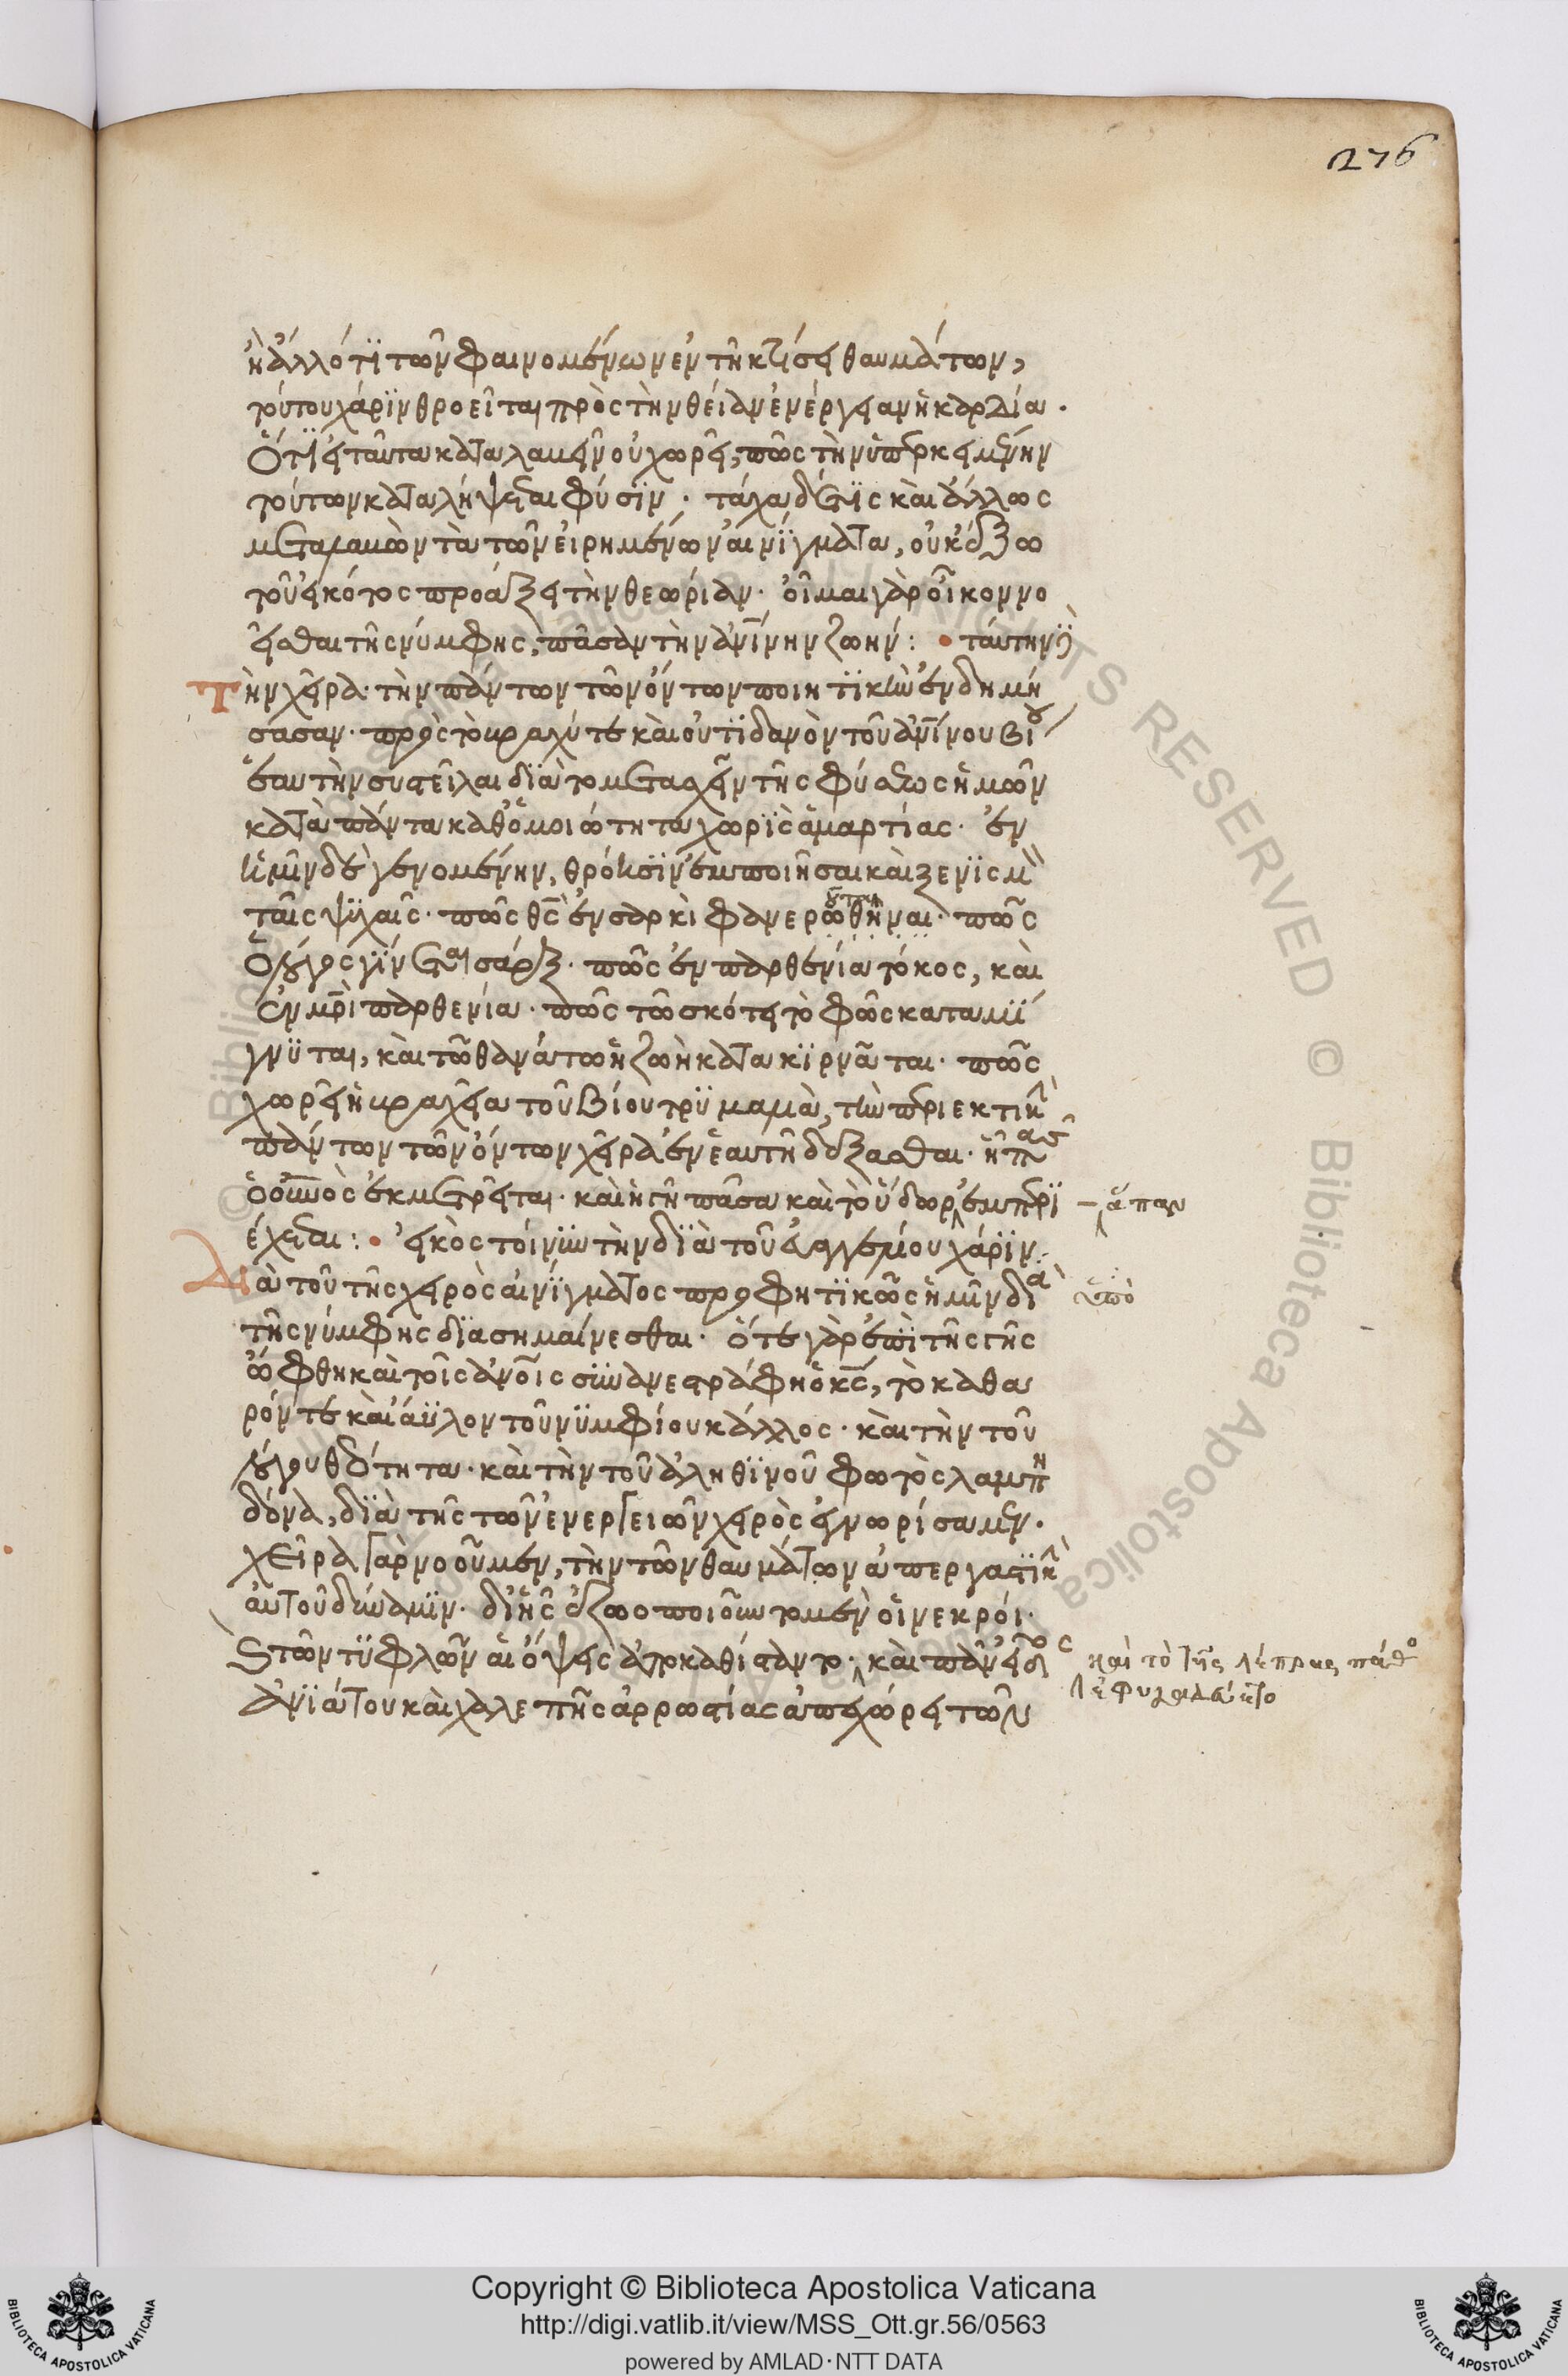 276
ἢ ἄλλό τϊ τῶν φαινομένων ἐν τῆ κτίσει θαυμάτων,
τούτου χάριν θροεῖται πρὸς τὴν θείαν ἐνέργειαν ἡ καρδία.
Ὅτι εἰ ταῦτα καταλαμεῖν οὐ χωρεῖ, πῶς τὴν ὑπερκειμένην
τούτων καταλήψεται φύσϊν· τάχα δέ τϊς καὶ ἄλλως
μεταλαμὼν τὰ τῶν εἰρημένων αἰνίγματα, οὐκ ἔξω
τοῦ εἰκότος προάξει τὴν θεωρίαν· οἶμαι γὰρ οἶκον νο
εῖσθαι τῆς νύμφης, πᾶσαν τὴν ἀνίνην ζωήν: • ταύτην δὲ
Τὴν χεῖρα· τὴν πάντων τῶν ὄντων ποιητϊκὴν ἐνδημή
σασαν· πρὸς τὸ βραχύ τε καὶ οὐτϊδανὸν τοῦ ἀνίνου βίου
ἑαυτὴν συστεῖλαι διὰ τὸ μετασχεῖν τῆς φύσεως ἡμῶν
κατὰ πάντα καθ' ὁμοιότητα χωρϊς ἁμαρτίας· ἐν
ἡμῖν δὲ γενομένην, θρόησϊν ἐμποιῆσαι καὶ ξενϊσμὸν
ταῖς ψϋχαῖς· πῶς θς ἐν σαρκὶ φανεροῦται φανερωθῆναι· πῶς
Ὁ λόγος γίνεται σάρξ· πῶς ἐν παρθενία τόκος, καὶ
ἐν μρὶ παρθενία· πῶς τῶ σκότει τὸ φῶς καταμί
γνϋται, καὶ τῶ θανάτω ἡ ζωὴ κατακϊρνᾶται· πῶς
χωρεῖ ἡ βραχεῖα τοῦ βίου τρϋμαλιὰ, τὴν περιεκτικὴν
πάντων τῶν ὄντων χεῖρα ἐν ἑαυτῆ δέξασθαι· ἧ πᾶς
ὁ οὐνὸς ἐκμετρεῖται· καὶ ἡ γῆ πᾶσα καὶ τὸ ὕδωρ ἐμπερϊ
έχεται: • εἰκὸς τοίνυν τὴν διὰ τοῦ εὐαγγελίου χάρϊν·
Διὰ τοῦ τῆς χειρὸς αἰνίγματος προφητϊκῶς ἡμῖν διὰ
τῆς νύμφης διασημαίνεσθαι· ὅτε γὰρ ἐπὶ τῆς γῆς
ὤφθη καὶ τοῖς ἀνοῖς συνανεστράφη ὁ κς, τὸ καθα
ρόν τε καὶ ἄϋλον τοῦ νϋμφίου κάλλος· καὶ τὴν τοῦ
λόγου θεότητα· καὶ τὴν τοῦ ἀληθϊνοῦ φωτὸς λαμπη
δόνα, διὰ τῆς τῶν ἐνεργειῶν χειρὸς ἐγνωρίσαμεν·
χεῖρα γὰρ νοοῦμεν, τὴν τῶν θαυμάτων ἀπεργαστϊκὴν
αὐτοῦ δύναμϊν· δι' ἧς ἐζωοποιοῦντο μὲν οἱ νεκροί·
τῶν τϋφλῶν αἱ ὄψεις ἀποκαθίσταντο· καὶ πᾶν εἶδος
ἀνϊάτου καὶ χαλεπῆς ἀρρωστίας ἀπεχώρει τῶν
ἅπαν
ὑπὸ
καὶ τὸ τῆς λέπρας πάθο
ἐφυγαδεύετο
Copyright © Biblioteca Apostolica Vaticana
http://digi.vatlib.it/view/MSS_Ott.gr.56/0563
powered by AMLAD·NTT DATA